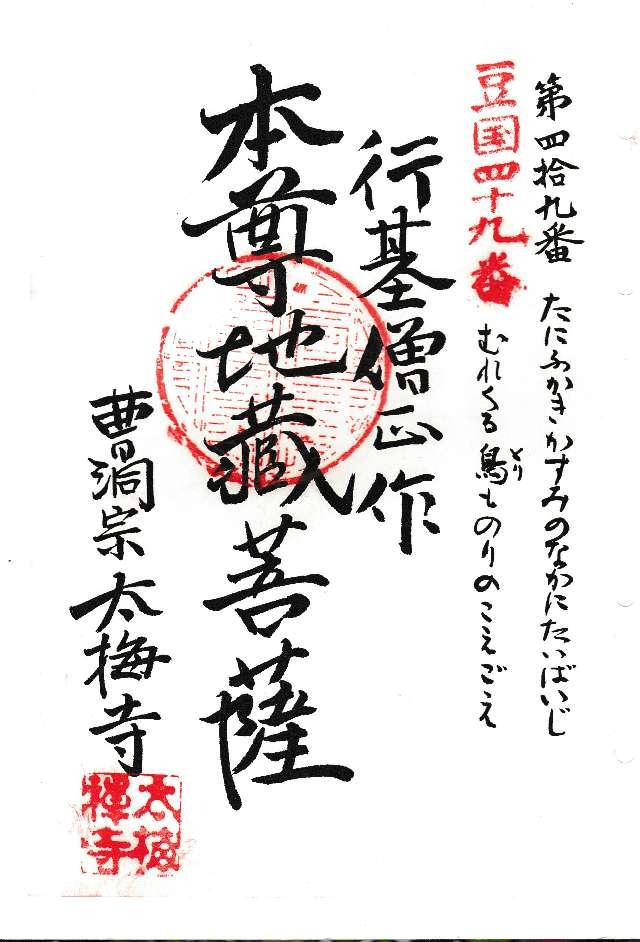 第四拾九番 たにふかきかすみのなかにたいばいじ
豆国四十九番 むれくる鳥ものりのこえごえ
とり
行基僧正作
本尊地蔵菩薩
曹洞宗太梅寺
太梅
禅寺